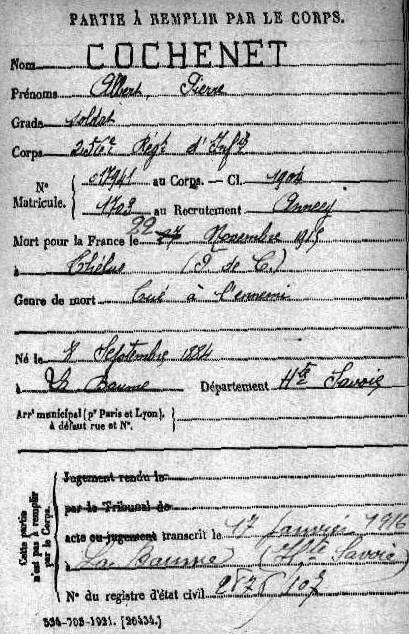 PARTIE À REMPLIR PAR LE CORPS.
Nom COCHENET
Prénoms Albert Pierre
Grade Soldat
Corps Régt d'Infie
N° Matricule. 017941 au Corps. — Cl. 1904
au Recrutement Annecy
Mort pour la France le 22 Novembre 1915
à Thélus (P. de C.)
Genre de mort Tué à l'ennemi
Né le 7 Septembre 1884
à La Baume Département Hte Savoie
Arrt municipal (pr Paris et Lyon), à défaut rue et N°.
Cette partie n'est pas à remplir par le Corps.
Jugement rendu le
par le Tribunal de
acte ou jugement transcrit le 17 janvier 1916
à La Baume (Hte Savoie)
N° du registre d'état civil
534-708-1921. [26434.]